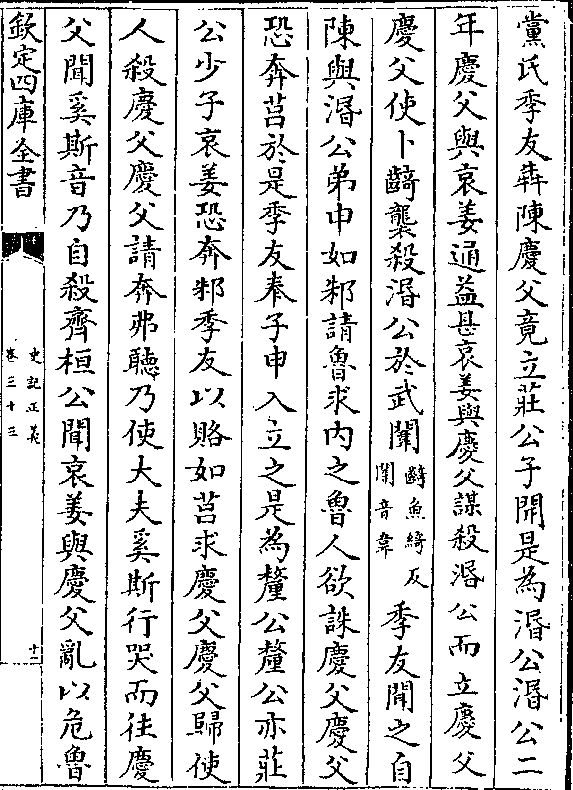 黨氏季友犇陳慶父竟立莊公子開是為湣公湣公二
年慶父與哀姜通益甚哀姜與慶父謀殺湣公而立慶父
慶父使卜齮襲殺湣公於武闈齮魚綺反闈音韋季友聞之自
陳與湣公弟申如邾請魯求內之魯人欲誅慶父慶父
恐奔莒於是季友奉子申入立之是為釐公釐公亦莊
公少子哀姜恐奔邾季友以賂如莒求慶父慶父歸使
人殺慶父慶父請奔弗聽乃使大夫奚斯行哭而往慶
父聞奚斯音乃自殺齊桓公聞哀姜與慶父亂以危魯
欽定四庫全書
史記正義
卷三十三
十二